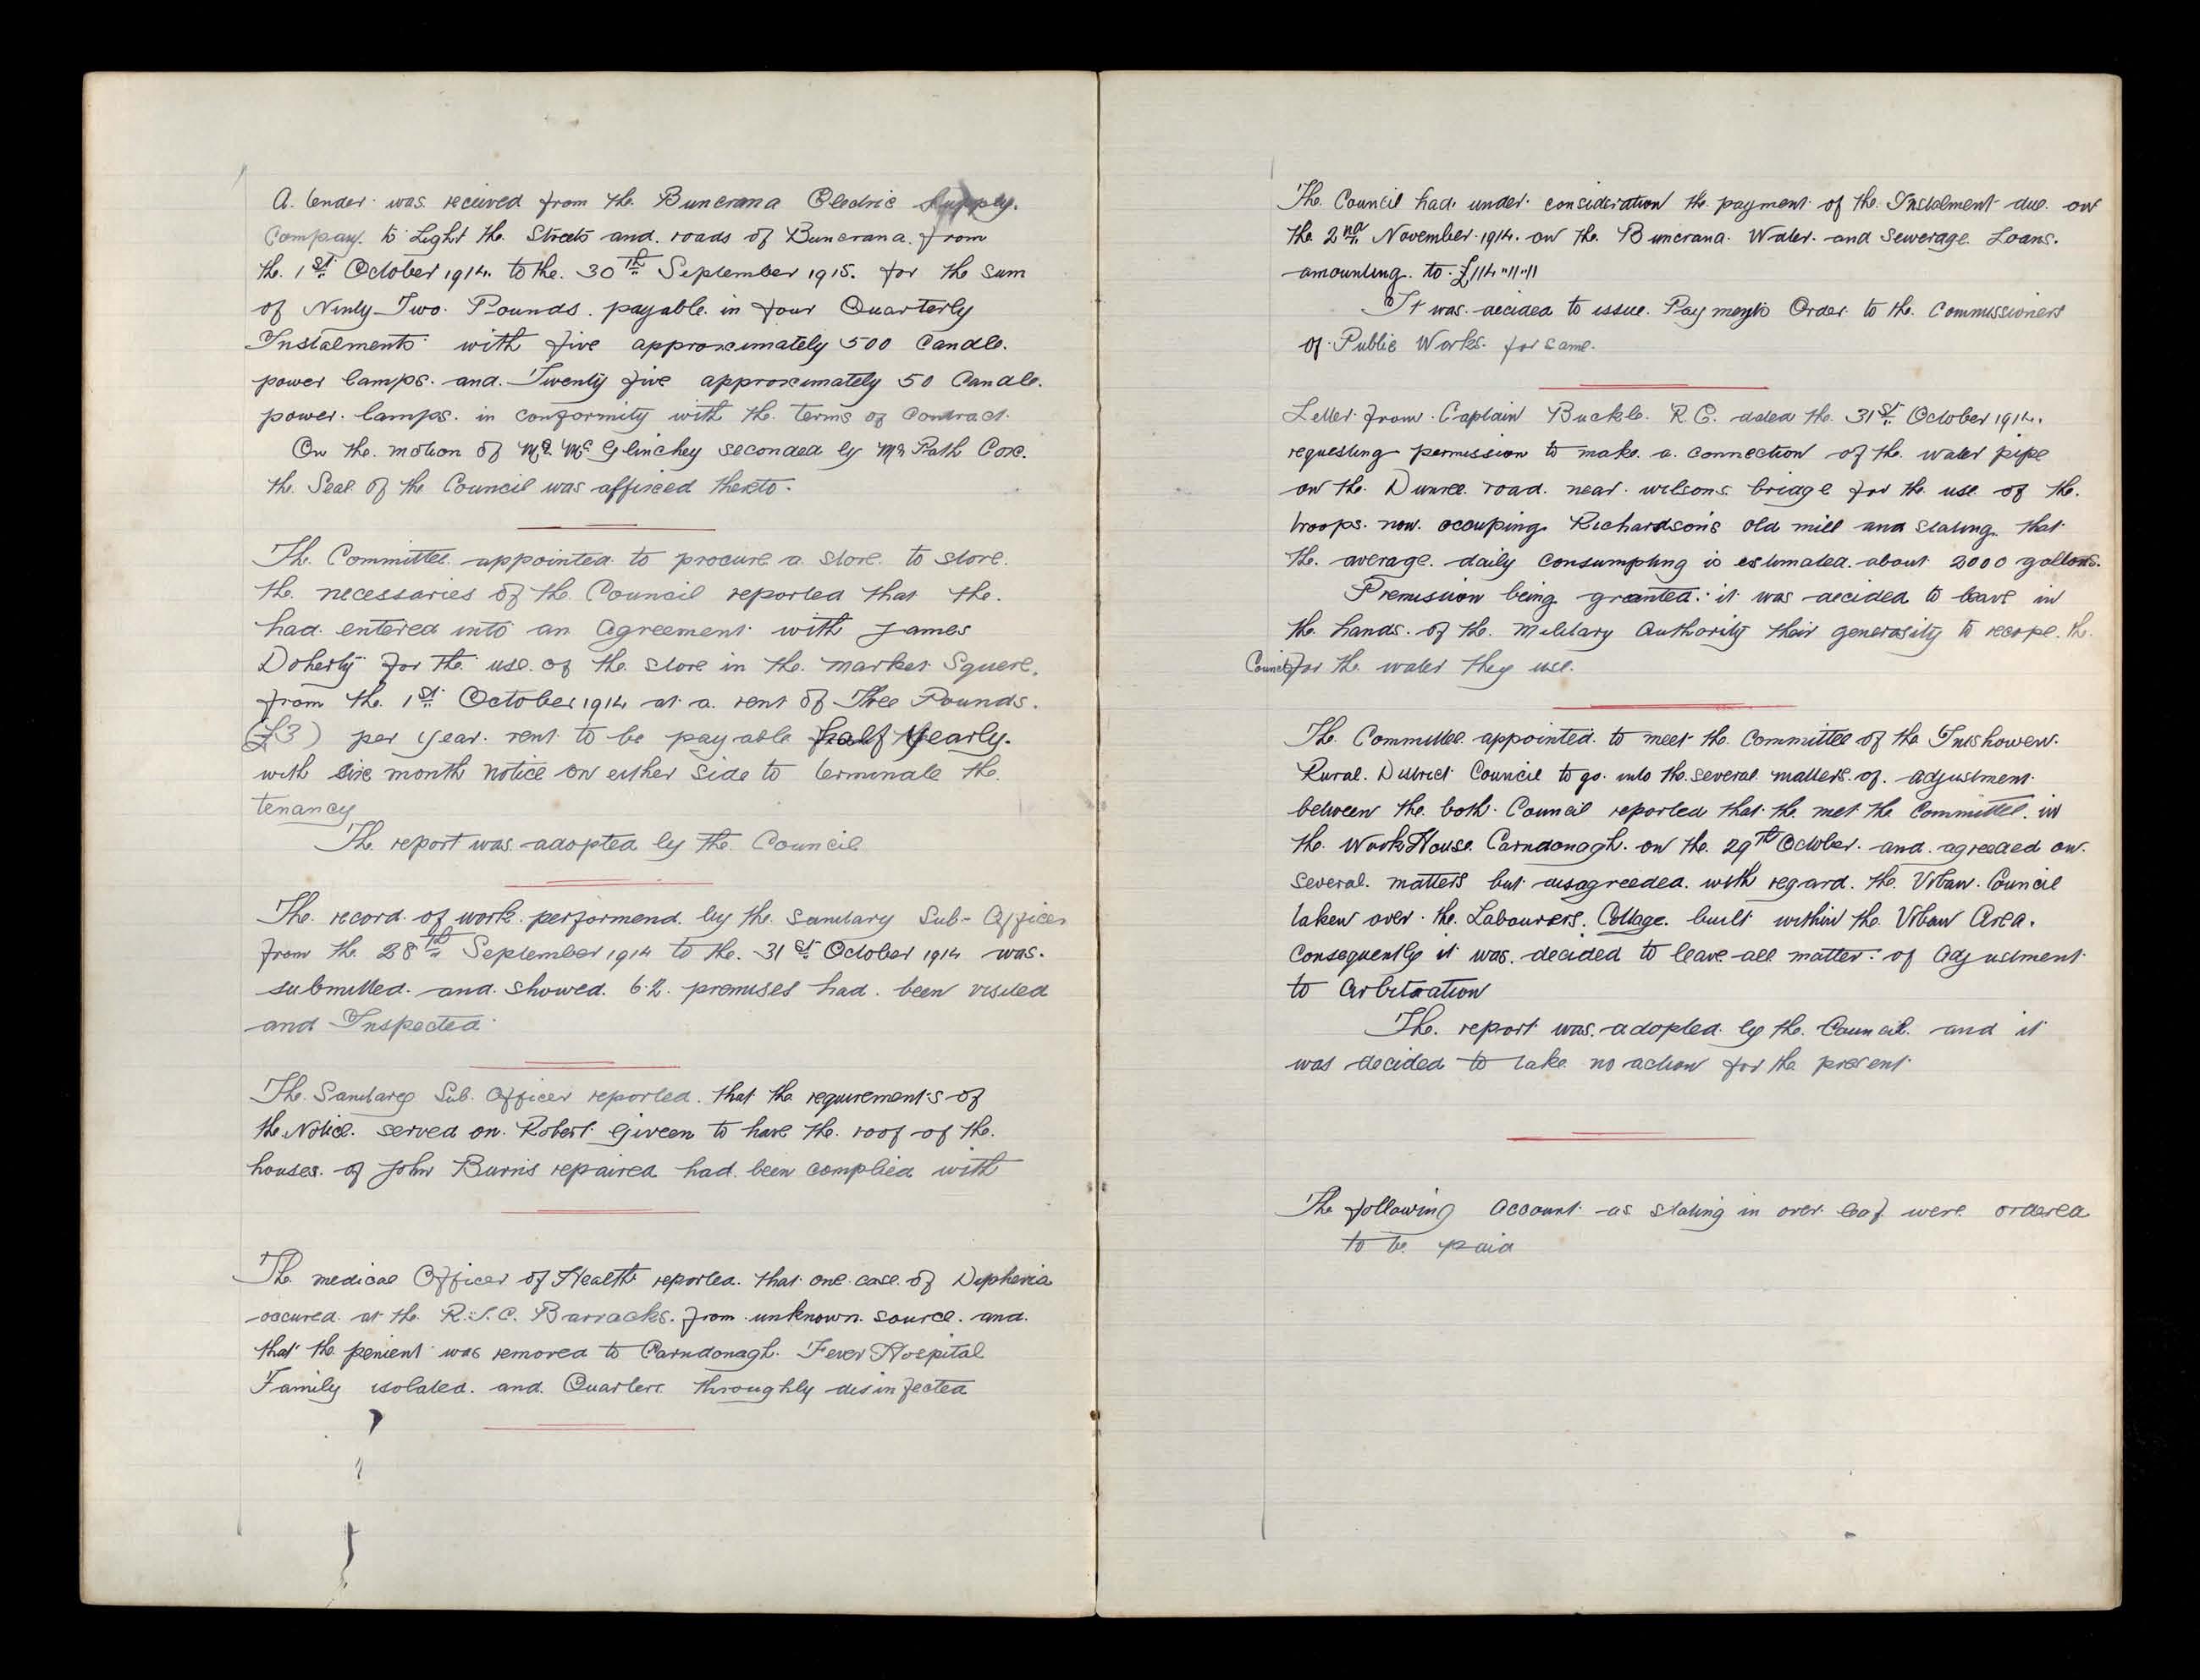 A. tender was received from the Buncrana Electric Supply.
Company. to Light the Streets and roads of Buncrana. from
the 1st October 1914. to the 30th September 1915. for the sum
of Ninty-Two Pounds. payable in four Quarterly
Instalments with five approximately 500 Candle.
power lamps. and. Twenty five approximately 50 Candle.
power. lamps. in conformity with the terms of Contract.
On the motion of Mr. Mc Glinchey seconded by Mr Path Coxe.
the Seal of the Council was affixed thereto.
The Committee appointed to procure a store to store.
the necessaries of the Council reported that the.
had entered into an Agreement with James
Doherty for the use of the store in the market Squere.
from the 1st October 1914 at a rent of Three Pounds.
(£3) per year. rent to be payable half yearly.
with six month notice on either side to terminate the
tenancy
The report was adopted by the Council
The record of work performend by the Sanitary Sub-Officer
from the 28th September 1914 to the 31st October 1914 was.
submitted. and showed. 62. premises had been visited
and Inspected.
The Sanitary Sub. Officer reported. that the requirements of
the Notice. served on Robert Giveen to have the roof of the.
houses of John Burns repaired had been complied with
The medical Officer of Health reported. that one case of Diptheria
occured at the R.I.C. Barracks. from unknown source. and.
that the penient was removed to Carndonagh. Fever Hospital
Family isolated. and Quarters throughly disinfected
The Council had. under consideration the payment of the Instalment due on
the 2nd November 1914. on the Buncrana Water. and Sewerage Loans.
amounting to £114"11"11
It was decided to issue Payments Order to the Commissioners
of Public Works. for same.
Letter from Captain Buckle. R.E. dated the 31st October 1914.
requesting permission to make a connection of the water pipe
on the Dunree road near wilsons bridge for the use of the.
troops. now. occuping Richardson's old mill and stating. that
the average. daily consumpting is estimated. about 2000 gallons.
Premission being granted. it was decided to leave in
the hands. of the Military Authority their generosity to the.
Council for the water they use.
The Committee appointed to meet the Committee of the Inishowen.
Rural. District Council to go into the several matters of adjustment
between the both Council reported that the met the Committee in
the WorkHouse Carndonagh. on the 29th October and agreeded on.
several matters but disagreeded. with regard. the Urban. Council
taken over the Labourers. Cottage built within the Urban Area.
Consequently it was decided to leave all matter of Adjustment
to Arbitration
The report was adopted by the Council and it
was decided to take no action for the present
The following Account as stating in over leaf were ordered
to be paid